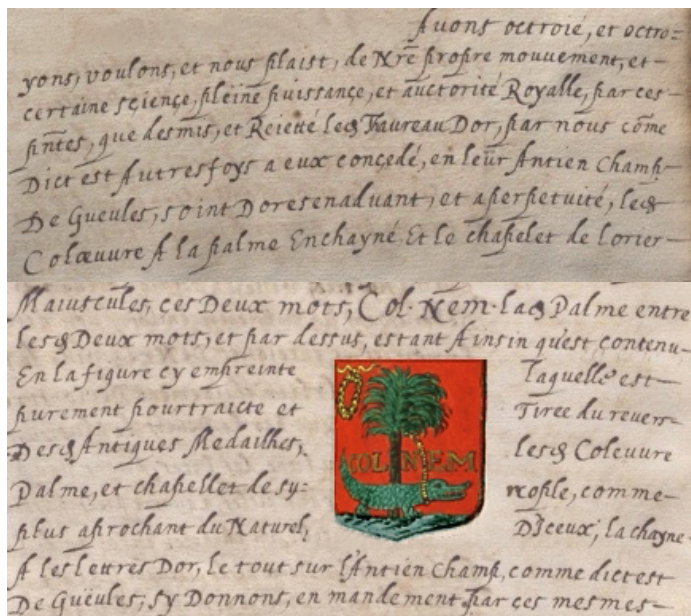 Avons octroié, et octro=
yons, voulons, et nous plaist, de Nr̃e propre mouvement, et
certaine sçience, pleine puissançe, et auctorité Royalle, par ces
pñtes, que desmis, et Reietté led Taureau Dor, par nous cõme
Dict est Autresfoys a eux conçedé, en leur Antien Champ
De Gueules, soint Doresenadvant, et aperpetuité, led
Colœuvre A la palme Enchayné, Et le chapelet de lorier
Maiuscules, ces Deux mots, Col. Nem. lad Palme entre
lesd Deux mots, et par dessus, estant Ainsin qu'est contenu
En la figure cy empreinte laquelle est
purement pourtraicte et Tiree du revers
Desd Antiques Medailhes, lesd Coleuvre
COL NEM
Palme, et chapellet de sy= comme
plus aprochant du Naturel, D'Iceux, la chayne
A les lettres Dor, le tout sur l'Antien Champ, comme dict est
De Gueules, sy Donnons, en mandement par ces mesmes